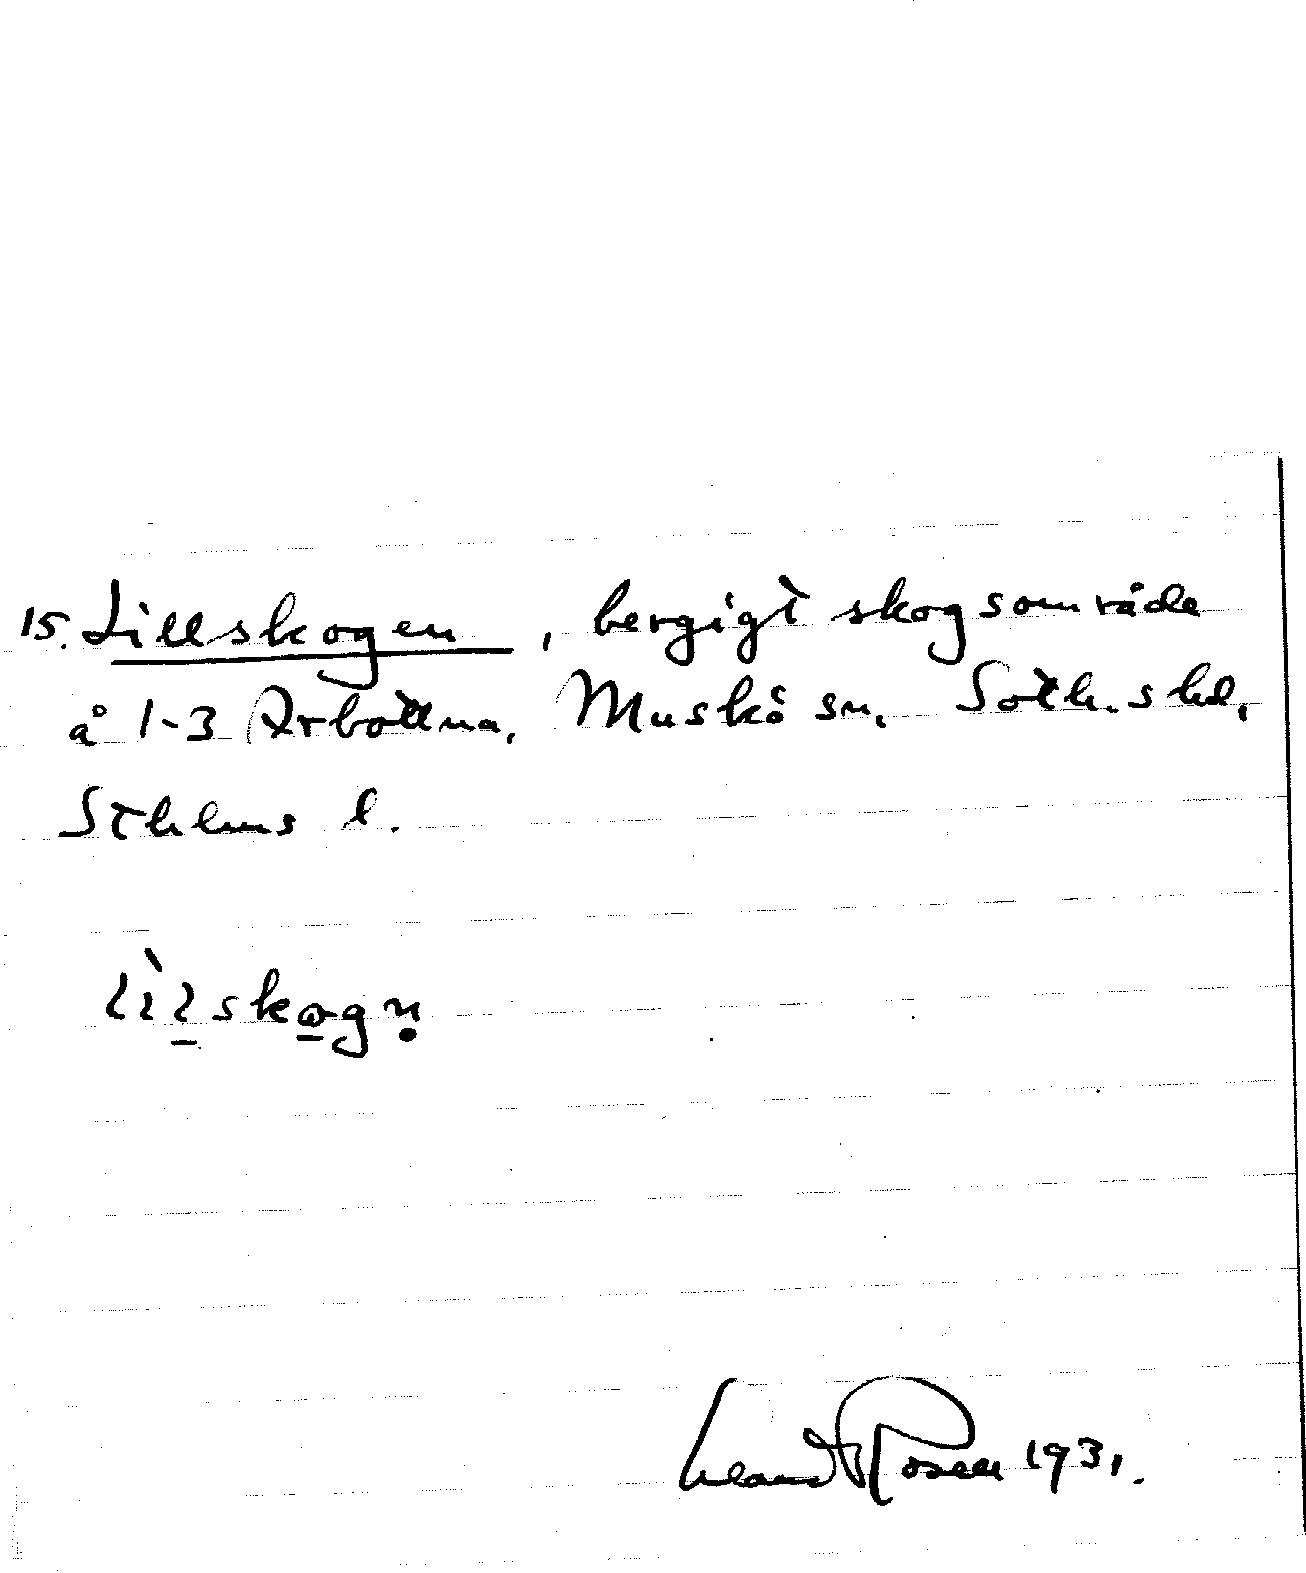 15. Lillskogen, bergigt skogsområde
å 1-3 Arbottna, Muskö sn, Soth.s hd,
Sthlms l.
lìlskogn̥
Rosell 1931.